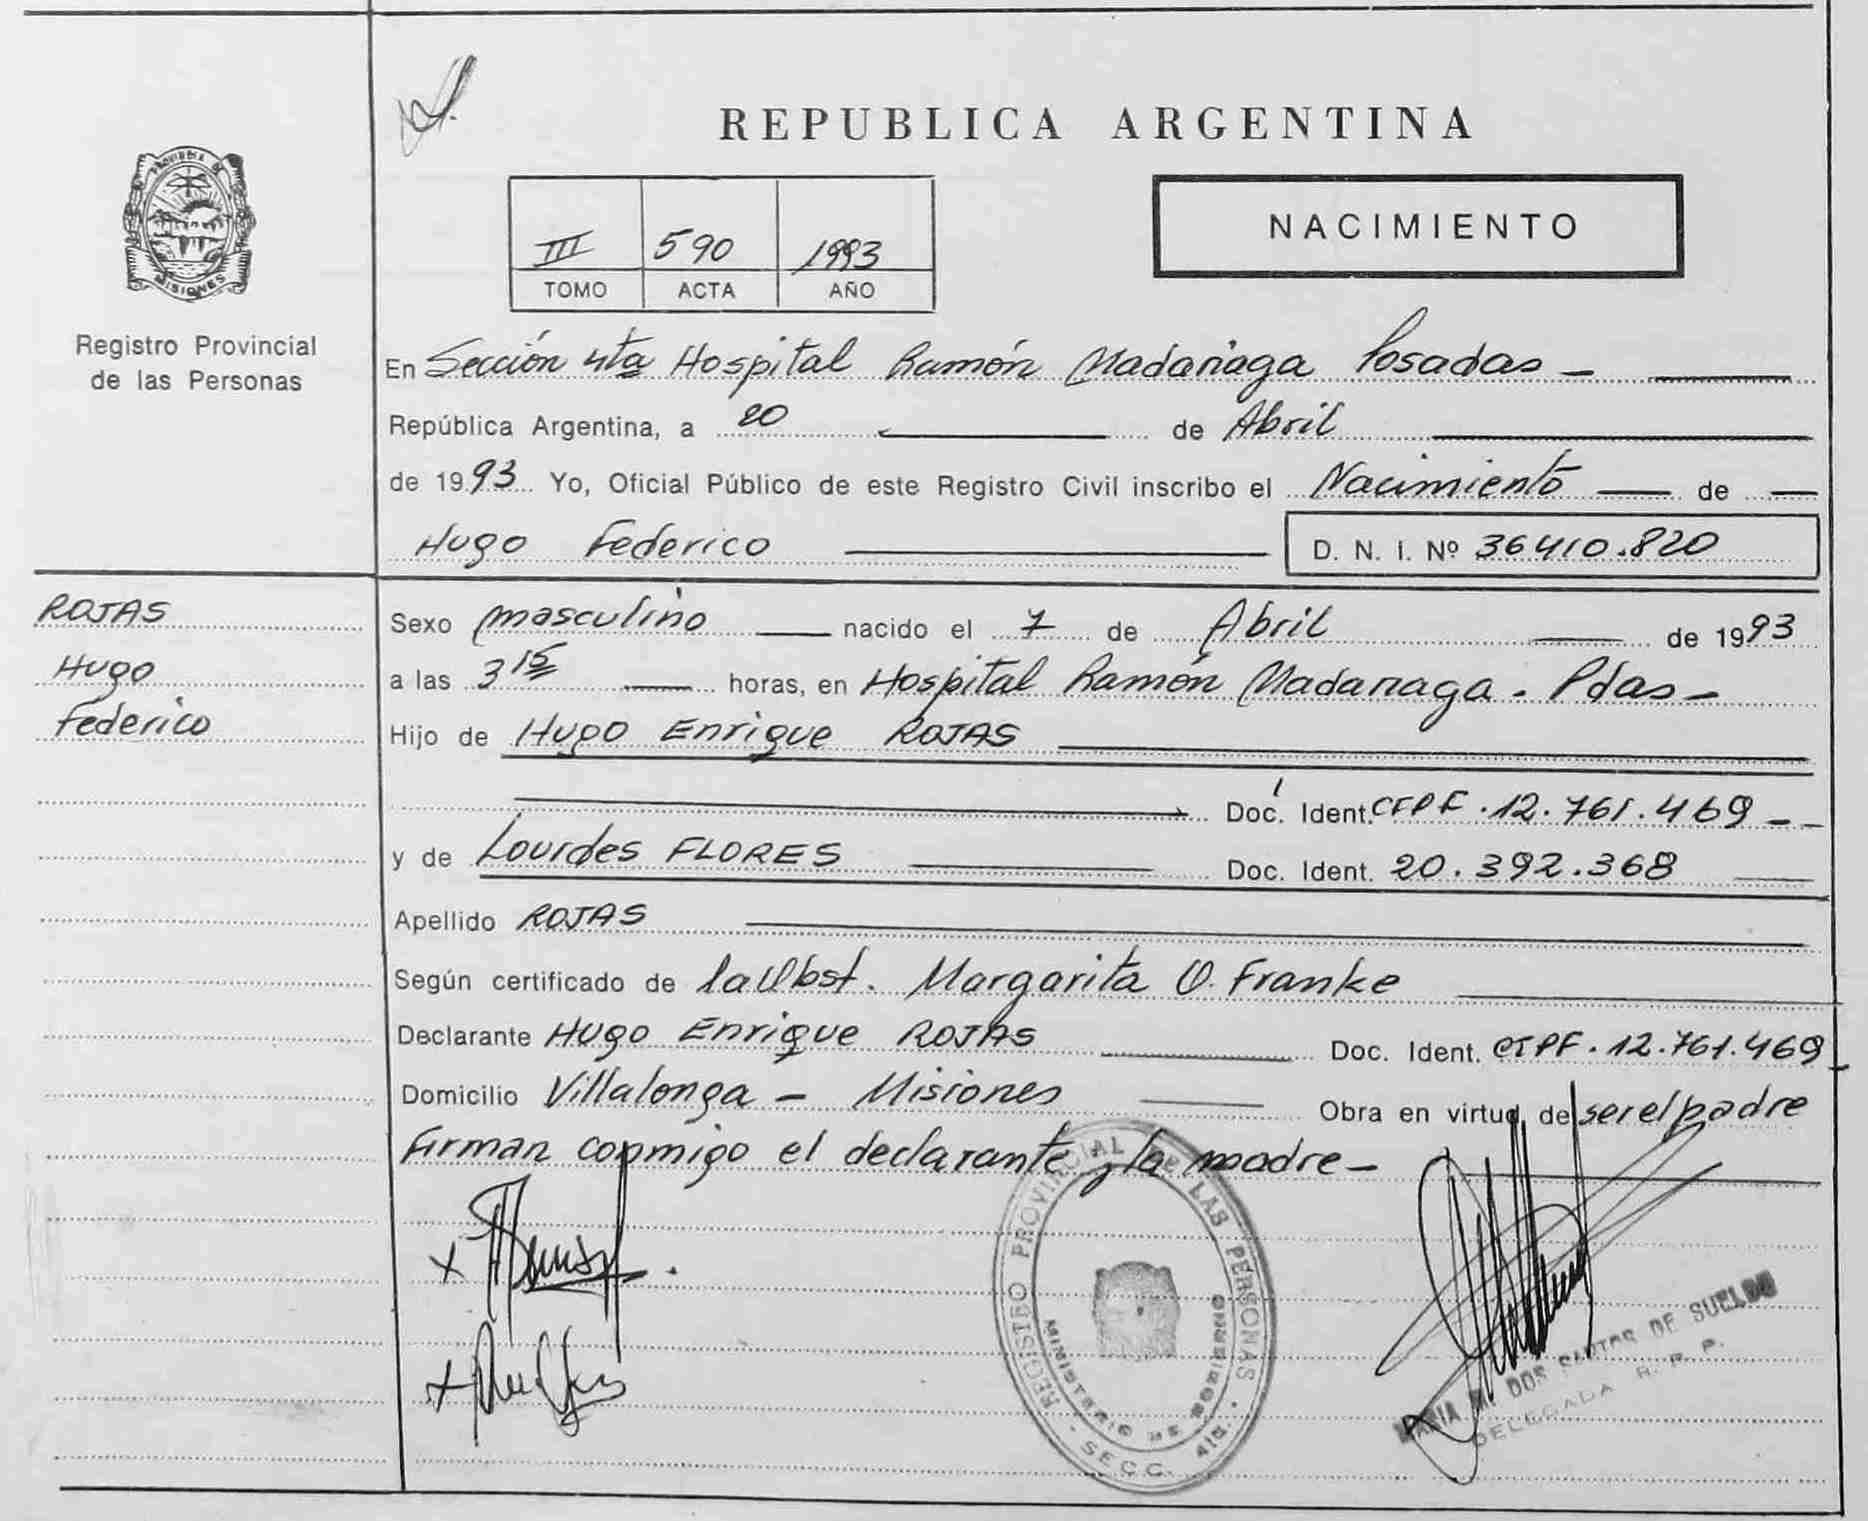 REPUBLICA ARGENTINA
PROVINCIA DE
MISIONES
Registro Provincial
de las Personas
III 590 1993
TOMO ACTA AÑO
NACIMIENTO
En Sección 4ta Hospital Ramón Madariaga Posadas
República Argentina, a 20 de Abril
de 1993 Yo, Oficial Público de este Registro Civil inscribo el Nacimiento de
Hugo Federico D. N. I. Nº 36410.820
ROJAS
Hugo
Federico
Sexo masculino nacido el 7 de Abril de 1993
a las 3 15 horas, en Hospital Ramón Madariaga. Pdas
Hijo de Hugo Enrique ROJAS
Doc. Ident. CIPF. 12.761.469
y de Lourdes FLORES Doc. Ident. 20.392.368
Apellido ROJAS
Según certificado de la Obst. Margarita O. Franke
Declarante Hugo Enrique ROJAS Doc. Ident. CIPF. 12.761.469
Domicilio Villalonga - Misiones Obra en virtud de ser el padre
Firman conmigo el declarante y la madre
REGISTRO PROVINCIAL DE LAS PERSONAS
MINISTERIO DE GOBIERNO
SECC. 4ta.
MARIA M. DOS SANTOS DE SUELDO
DELEGADA R. P. P.